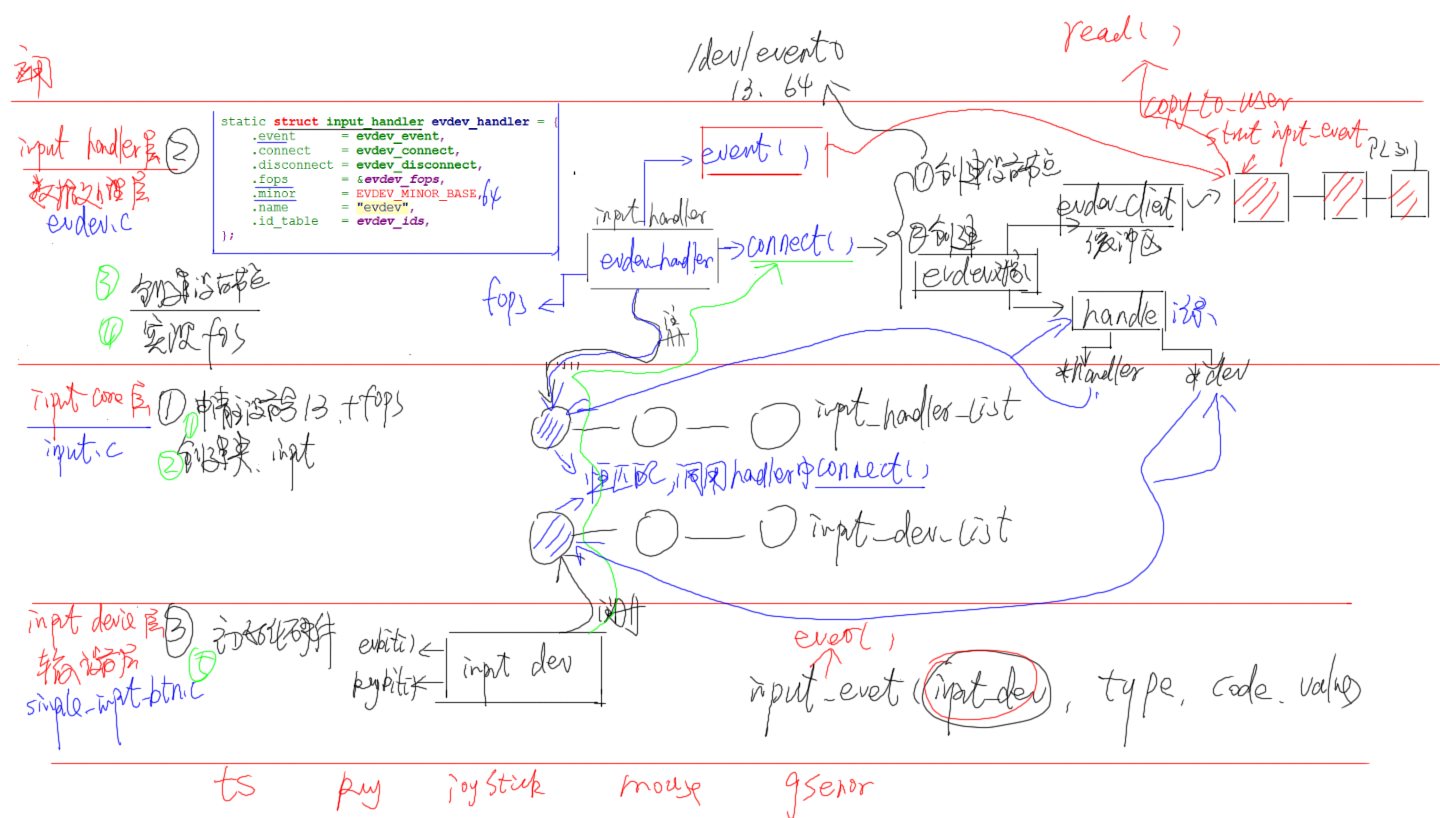 read( )
/dev/event0
13、64
应用
copy_to_user
struct input_event
input handler层 ②
数据处理层
evdev.c
static struct input_handler evdev_handler = {
.event = evdev_event,
.connect = evdev_connect,
.disconnect = evdev_disconnect,
.fops = &evdev_fops,
.minor = EVDEV_MINOR_BASE, 64
.name = "evdev",
.id_table = evdev_ids,
};
event( ,
①创建设备节点
input_handler
evdev_handler
connect( ,
②创建
evdev对象
evdev_client
缓冲区
handle 记录
*handler
*dev
fops
③ 创建设备节点
④ 实现fops
注册
input core层
input.c
① 申请主设备号13 + fops
①
② 创建类、input
input_handler_list
匹配,调用handler中connect( ,
input_dev_list
input device层 ③
初始化硬件
输入设备层
⑤
simple_input_btn.c
evbit( )
keybit( )
input dev
注册
event( ,
input_evet (input_dev, type, code, value)
ts key joystick mouse gsenor